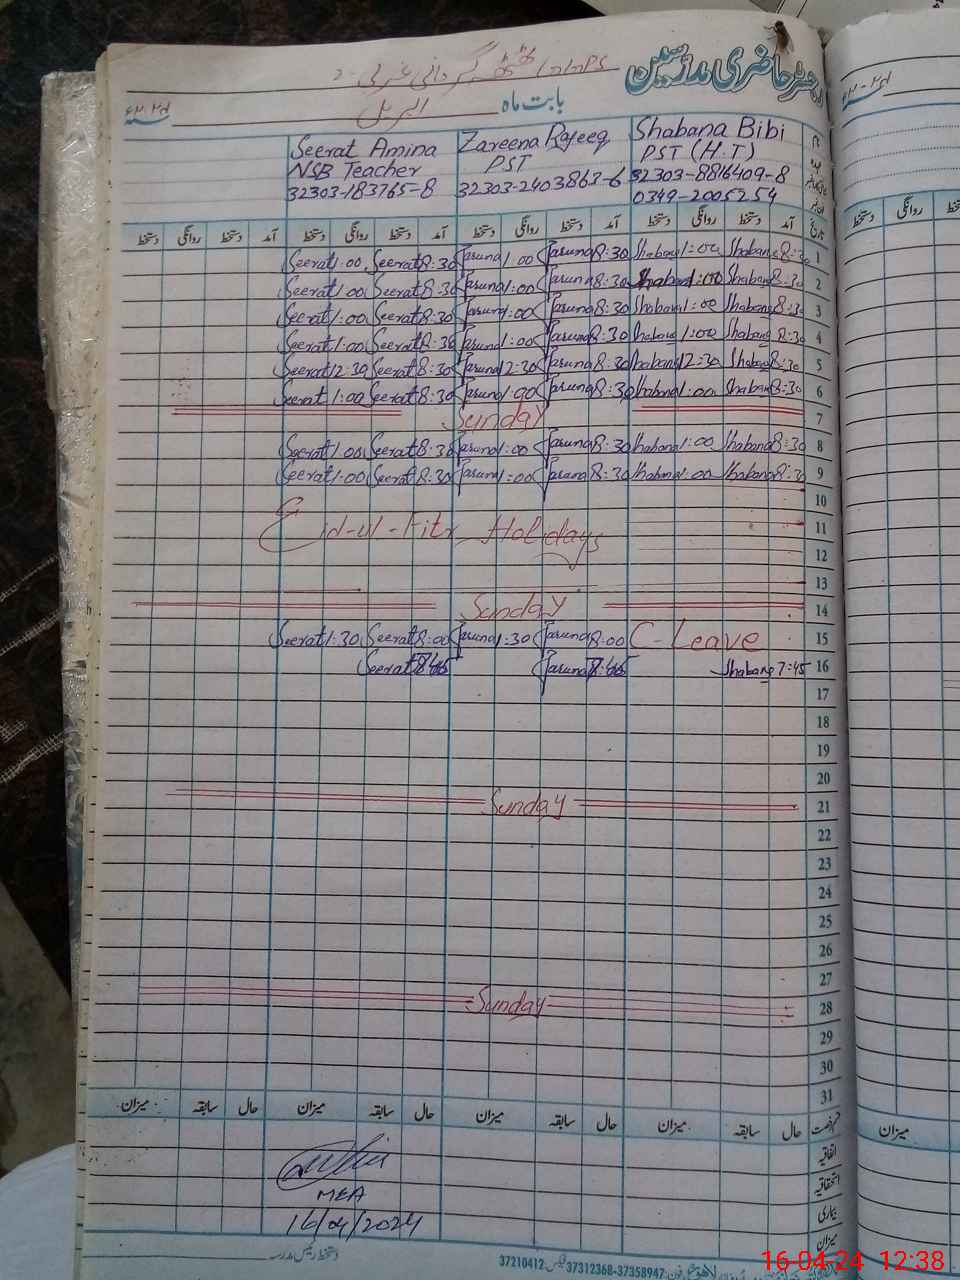 رجسٹر حاضری مدرسین
بابت ماہ اپریل
Shabana Bibi
PST (H.T)
32303-8816409-8
0349-2005254
Zareena Rafeeq
PST
32303-2403863-6
Seerat Amina
NSB Teacher
32303-183765-8
تاریخ آمد دستخط روانگی دستخط آمد دستخط روانگی دستخط آمد دستخط روانگی دستخط آمد دستخط روانگی دستخط
Seerat 1:00 Seerat 8:30 1:00 8:30 Shabana 1:00 Shabana 8:30 1
Seerat 1:00 Seerat 8:30 1:00 8:30 Shabana 1:00 Shabana 8:30 2
Seerat 1:00 Seerat 8:30 1:00 8:30 Shabana 1:00 Shabana 8:30 3
Seerat 1:00 Seerat 8:30 1:00 8:30 Shabana 1:00 Shabana 8:30 4
Seerat 12:30 Seerat 8:30 12:30 8:30 Shabana 12:30 Shabana 8:30 5
Seerat 1:00 Seerat 8:30 1:00 8:30 Shabana 1:00 Shabana 8:30 6
Sunday 7
Seerat 1:00 Seerat 8:30 1:00 8:30 Shabana 1:00 Shabana 8:30 8
Seerat 1:00 Seerat 8:30 1:00 8:30 Shabana 1:00 Shabana 8:30 9
10
Eid-ul-Fitr Holidays 11
12
13
Sunday 14
Seerat 1:30 Seerat 8:00 1:30 8:00 C-Leave 15
Seerat Shabana 7:45 16
17
18
19
20
Sunday 21
22
23
24
25
26
27
Sunday 28
29
30
31
حال سابقہ میزان حال سابقہ میزان حال سابقہ میزان حال سابقہ میزان
اتفاقیہ
استحقاقیہ
بیماری
میزان
MEA
16/04/2024
دستخط رئیس مدرسہ
37210412 فیکس 37312368-37358947 فون
میزان
روانگی دستخط
16-04-24 12:38